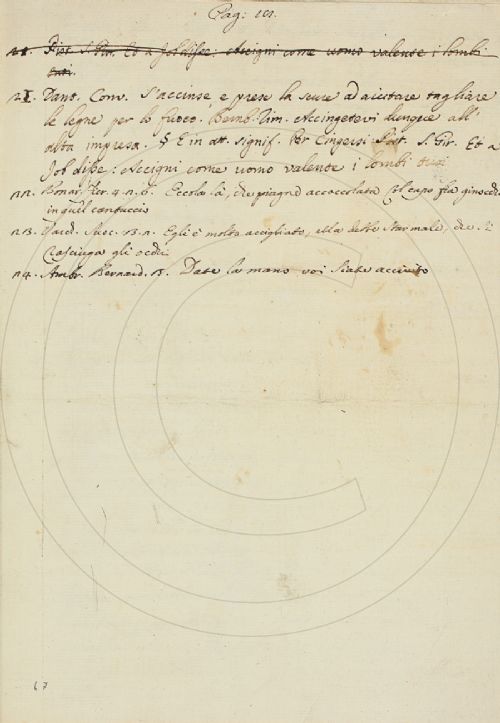 Pag: 101.
21. Pist. S. Gir. Et a Job disse: Accigni come uomo valente i lombi
tuoi.
21. Dant. Conv. S'accinse e prese la scure ad aiutare tagliare
le legne per lo fuoco. Bemb. Accingetevi dunque all'
alta impresa. § E in att. signif. Per Cingersi. Pist. S. Gir. Et a
Job disse: Accigni come uomo valente i lombi tuoi
22. Buonar. Eccola là, che piagne accoccolata Col capo fra ginocchi
in quel cantuccio
23. Egli è molto accigliato, ella debbe star male, che si
rasciuga gli occhi
24. Ambr. Bernard. Date la mano voi siate accivito
67